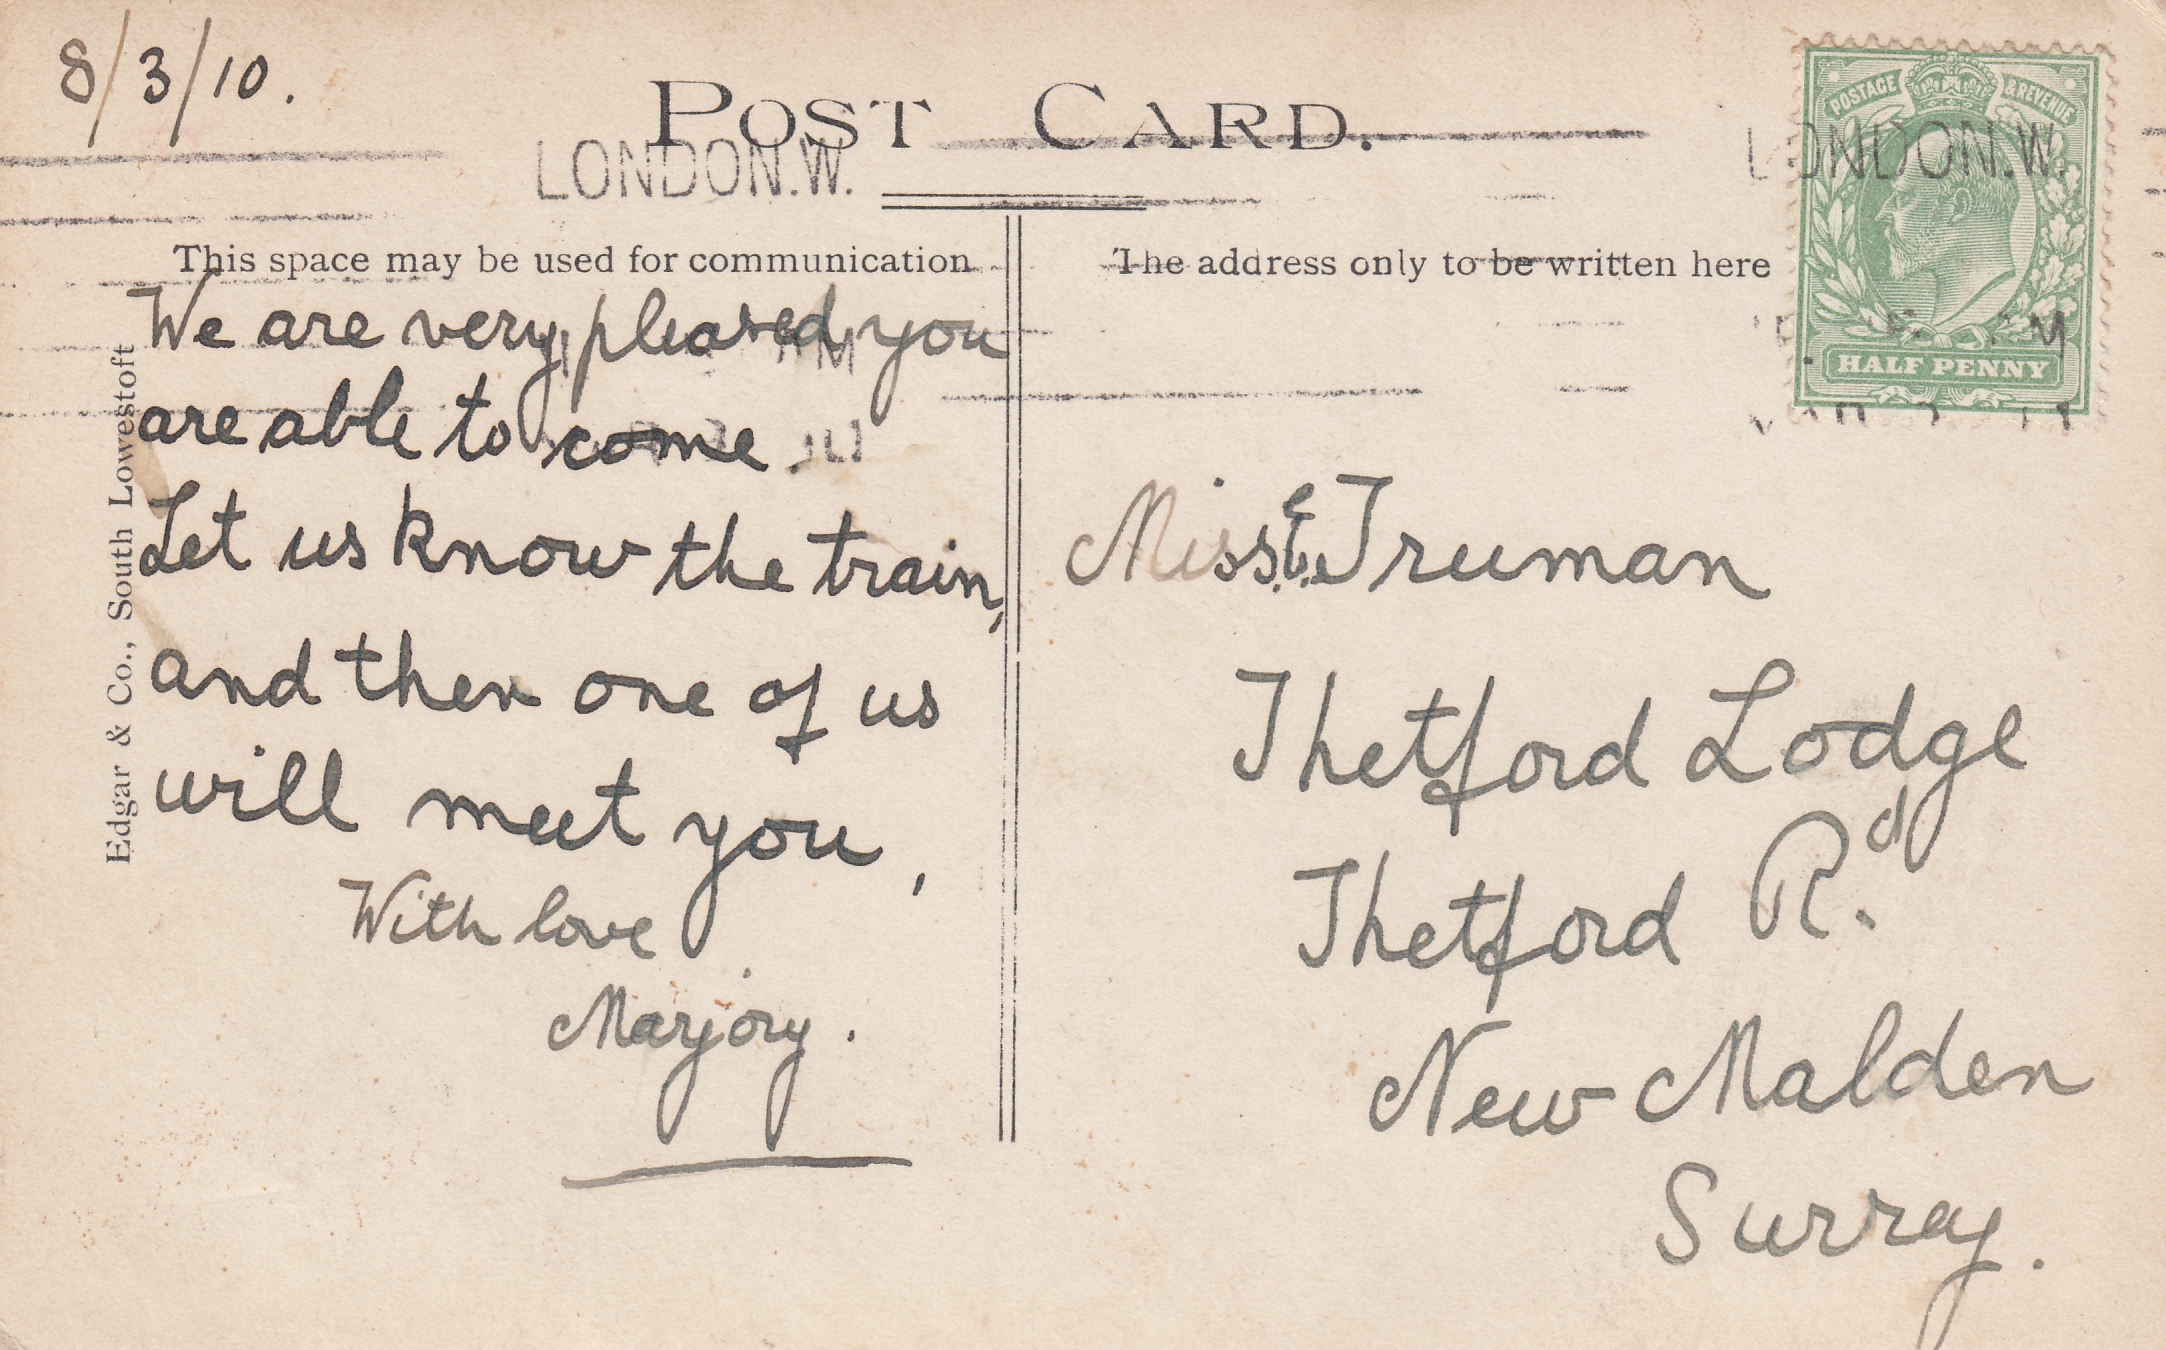 8/3/10.
POST CARD.
LONDON.W.
LONDON.W.
POSTAGE & REVENUE
HALF PENNY
This space may be used for communication
The address only to be written here
We are very pleased you
are able to come
Let us know the train,
and then one of us
will meet you,
With love
Marjory.
Edgar & Co., South Lowestoft
Miss E. Truman
Thetford Lodge
Thetford Rd.
New Malden
Surrey.